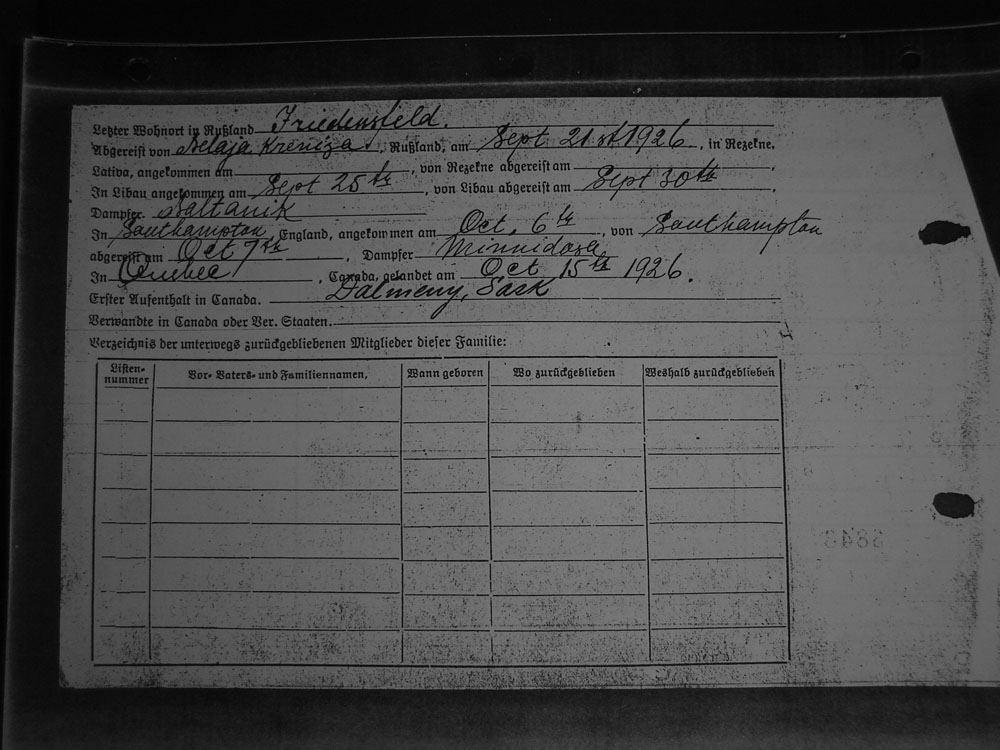 Letzter Wohnort in Rußland Friedensfeld.
Abgereist von Belaja Kreniza, Rußland, am Sept 21st 1926, in Rezekne,
Lativa, angekommen am , von Rezekne abgereist am
In Libau angekommen am Sept 25th, von Libau abgereist am Sept 30th.
Dampfer. Baltanik
In Southampton, England, angekommen am Oct. 6th, von Southampton
abgereist am Oct 7th, Dampfer Minnidosa
In Quebec, Canada, gelandet am Oct 15th 1926.
Erster Aufenthalt in Canada. Dalmeny, Sask
Verwandte in Canada oder Ver. Staaten.
Verzeichnis der unterwegs zurückgebliebenen Mitglieder dieser Familie:
Listen-nummer Vor- Vaters- und Familiennamen, Wann geboren Wo zurückgeblieben Weshalb zurückgeblieben